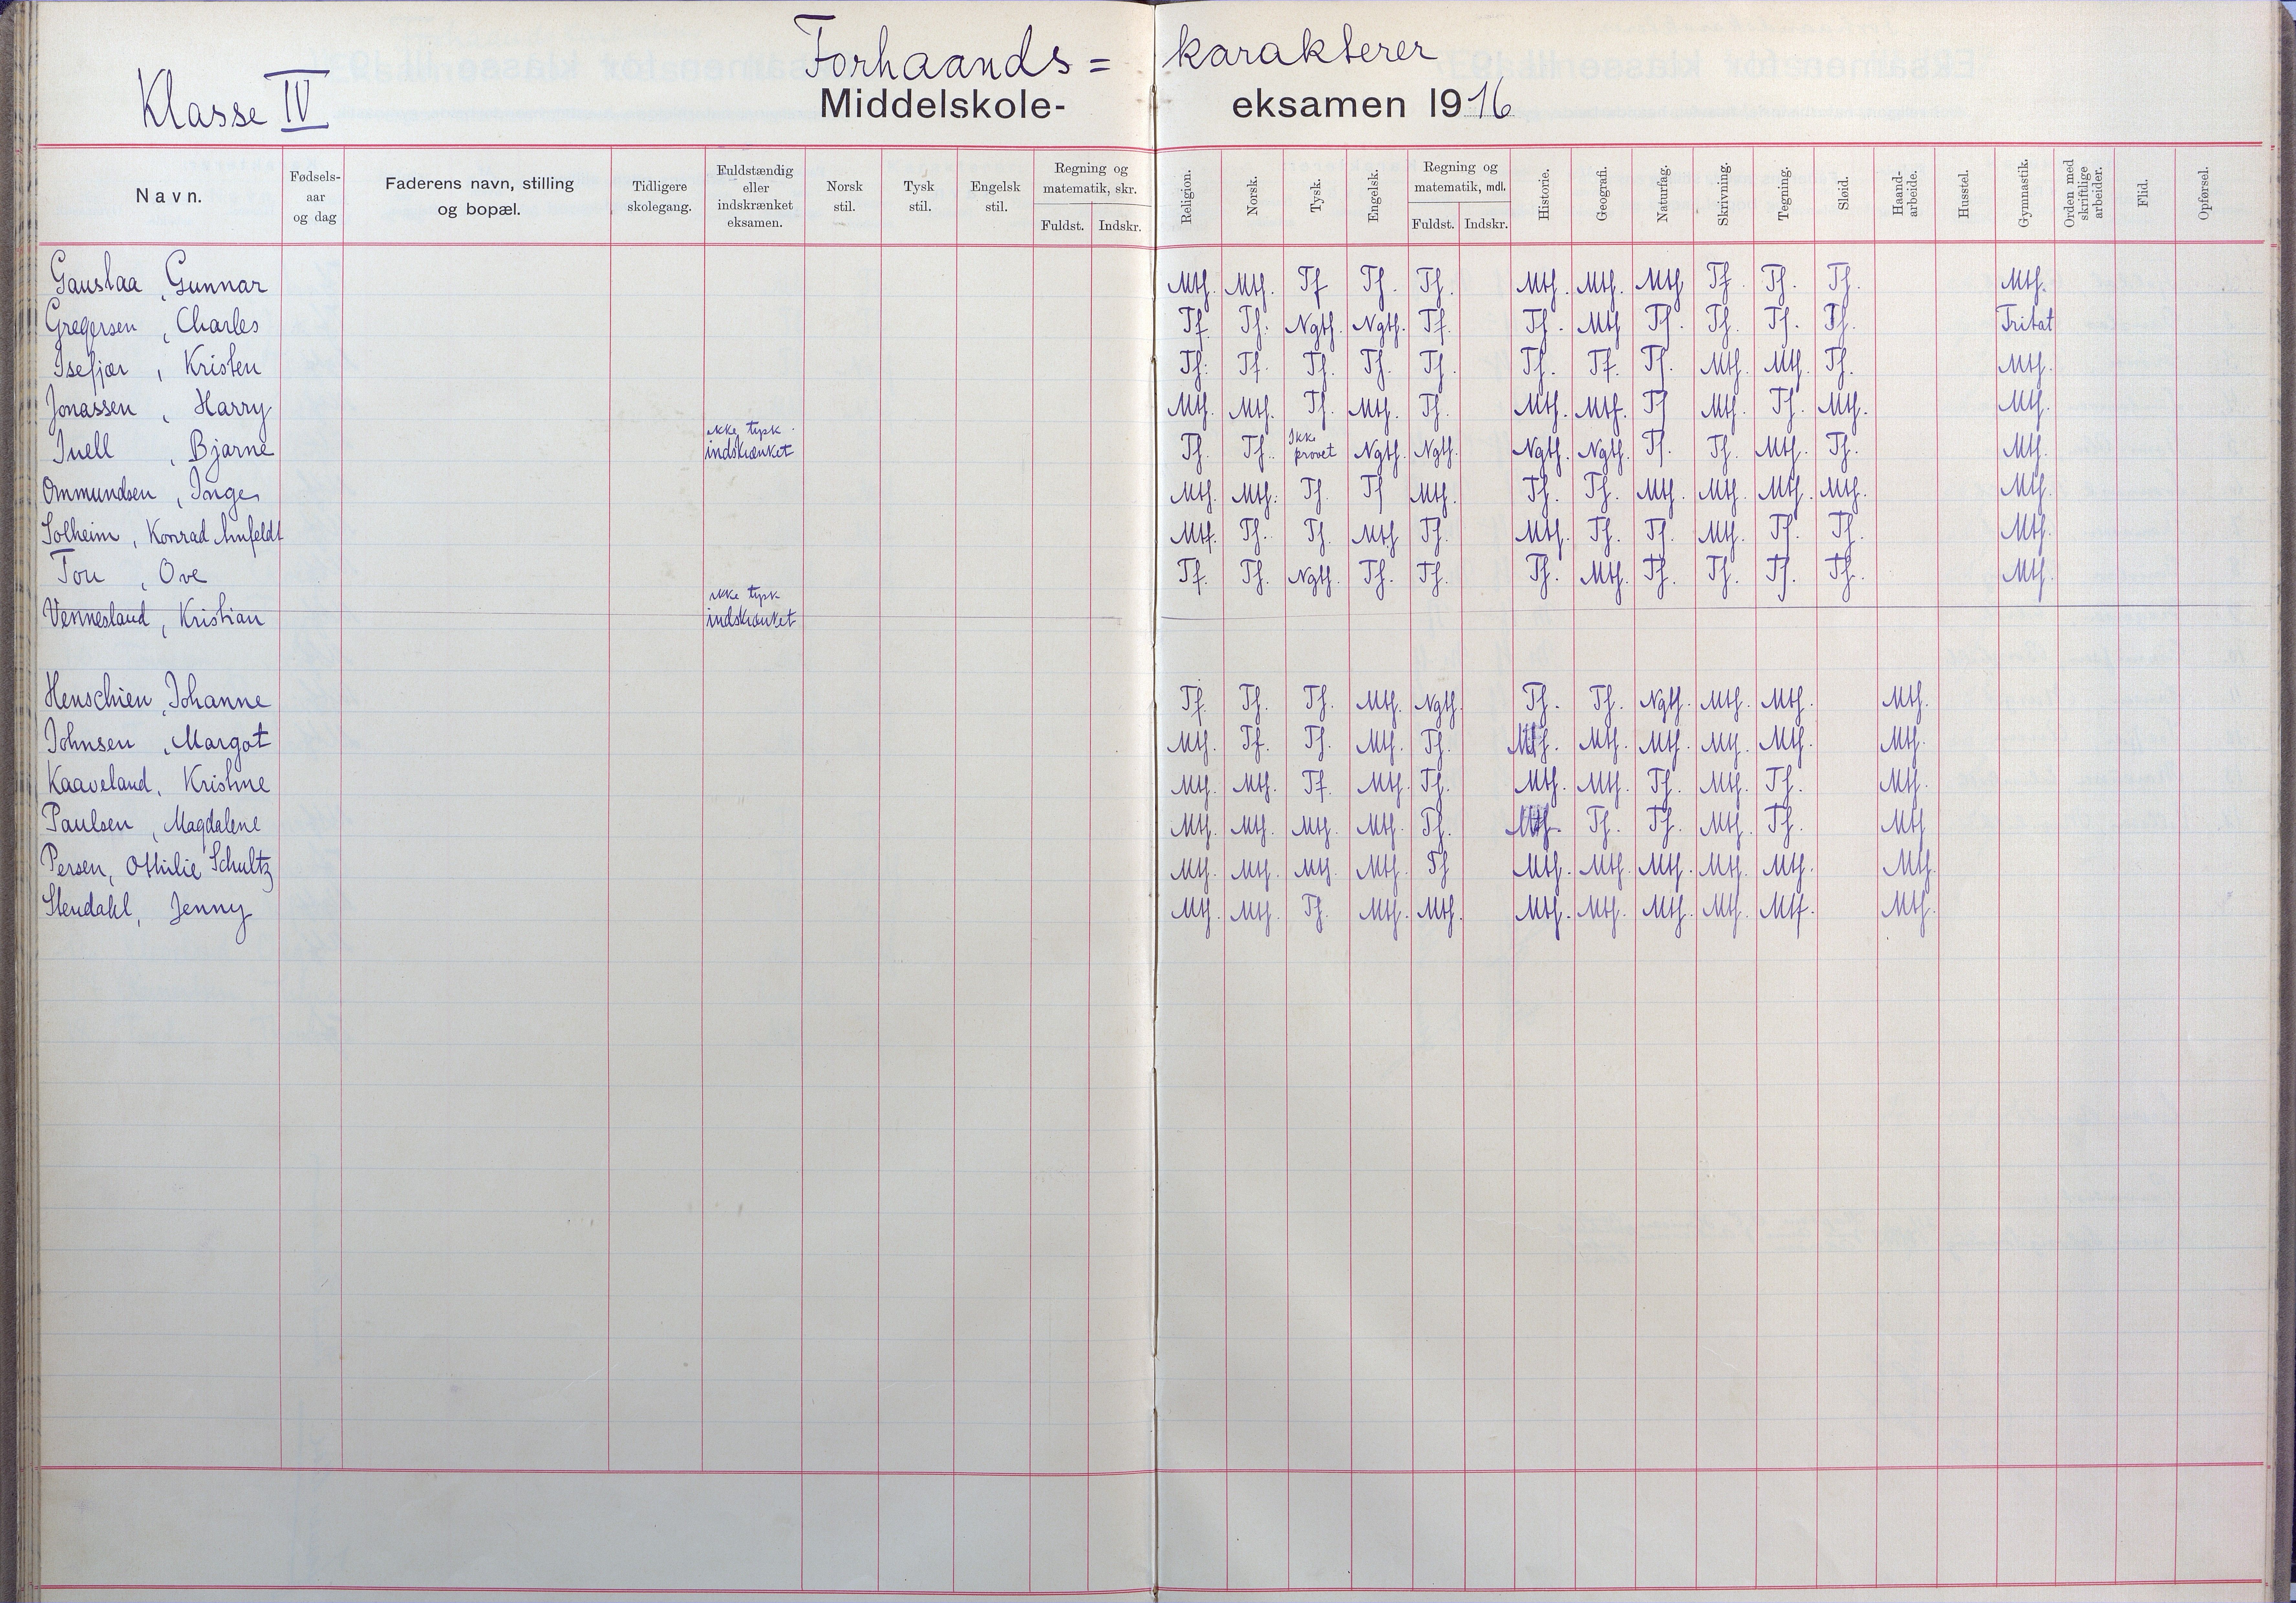 Forhaands= karakterer
Klasse IV Middelskole- eksamen 1916
Navn. Fødsels- aar og dag Faderens navn, stilling og bopæl. Tidligere skolegang. Fuldstændig eller indskrænket eksamen. Norsk stil. Tysk stil. Engelsk stil. Regning og matematik, skr. Fuldst. Indskr. Religion. Norsk. Tysk. Engelsk. Regning og matematik, mdl. Fuldst. Indskr. Historie. Geografi. Naturfag. Skrivning. Tegning. Sløid. Haand- arbeide. Husstel. Gymnastik. Orden med skriftlige arbeider. Flid. Opførsel.
Gauslaa, Gunnar Mtf. Mtf. Tf Tf. Tf. Mtf. Mtf. Mtf Tf. Tf. Tf. Mtf.
Gregersen, Charles Tf. Tf. Ngtf. Ngtf. Tf. Tf. Mtf Tf. Tf. Tf. Tf. Fritat
Isefjær, Kristen Tf. Tf. Tf. Tf. Tf. Tf. Tf. Tf. Mtf. Mtf. Tf. Mtf.
Jonassen, Harry Mtf. Mtf. Tf. Mtf. Tf. Mtf. Mtf. Tf Mtf. Tf. Mtf. Mtf.
Juell, Bjarne ikke tysk. indskrænket Tf. Tf. Ikke prøvet Ngtf. Ngtf. Ngtf. Ngtf. Tf. Tf. Mtf. Tf. Mtf.
Ommundsen, Inge Mtf. Mtf. Tf. Tf Mtf. Tf. Tf. Mtf. Mtf. Mtf. Mtf. Mtf.
Solheim, Konrad Mtf. Tf. Tf. Mtf Tf. Mtf. Tf. Tf. Mtf. Tf. Tf. Mtf.
Tou, Ove Tf. Tf. Ngtf. Tf. Tf. Tf. Mtf. Tf. Tf. Tf. Tf. Mtf.
Vennesland, Kristian ikke tysk indskrænket
Henschien, Johanne Tf. Tf. Tf. Mtf. Ngtf. Tf. Tf. Ngtf. Mtf. Mtf. Mtf.
Johnsen, Margot Mtf. Tf. Tf. Mtf. Tf. Mtf. Mtf. Mtf. Mtf. Mtf. Mtf.
Kaaveland, Kristine Mtf. Mtf. Tf. Mtf. Tf. Mtf. Mtf. Tf. Mtf. Tf. Mtf.
Paulsen, Magdalene Mtf. Mtf. Mtf. Mtf. Tf. Mtf. Tf. Tf. Mtf. Tf. Mtf
Persen, Othilie Schultz Mtf. Mtf. Mtf. Mtf. Tf Mtf. Mtf. Mtf. Mtf. Mtf. Mtf.
Stendahl, Jenny Mtf. Mtf. Tf. Mtf. Mtf. Mtf. Mtf. Mtf. Mtf. Mtf. Mtf.